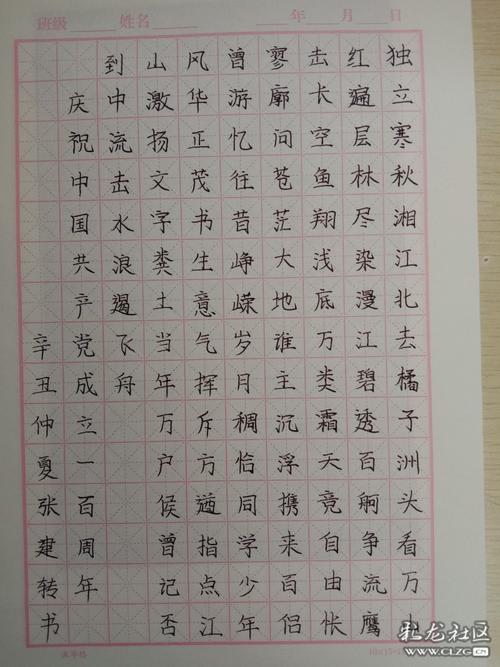 班级 姓名 年 月 日
独立寒秋湘江北去橘子洲头看万山
红遍层林尽染漫江碧透百舸争流鹰
击长空鱼翔浅底万类霜天竞自由怅
寥廓问苍茫大地谁主沉浮携来百侣
曾游忆往昔峥嵘岁月稠恰同学少年
风华正茂书生意气挥斥方遒指点江
山激扬文字粪土当年万户侯曾记否
到中流击水浪遏飞舟
庆祝中国共产党成立一百周年
辛丑仲夏张建转书
彩龙社区
WWW.CLZG.CN